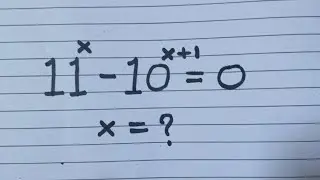 11^x - 10^{x+1} = 0
x = ?